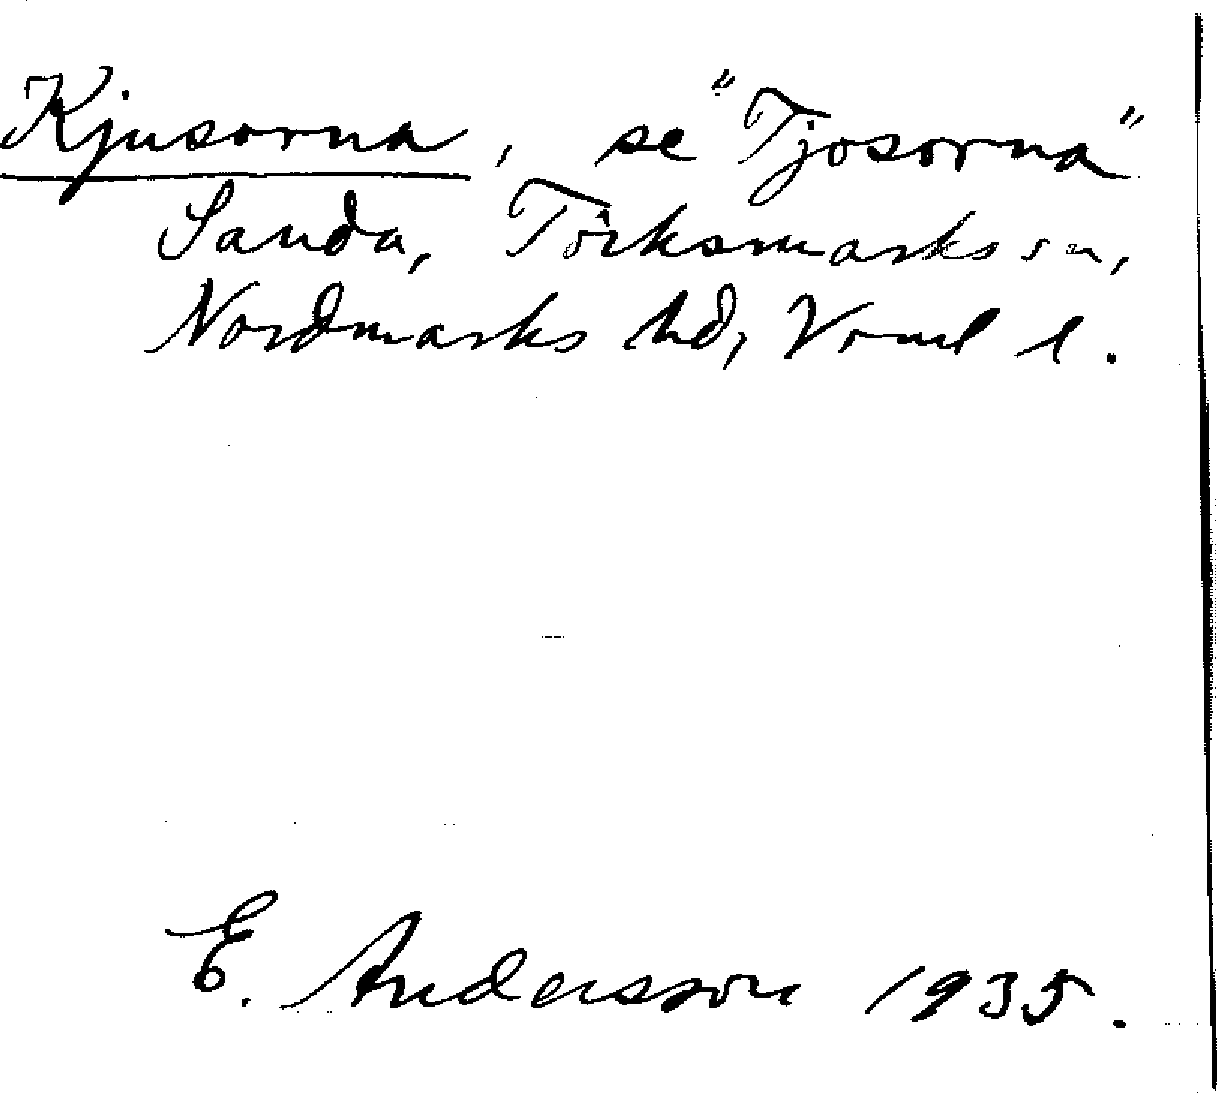 Kjusorna, se "Tjosorna"
Sanda, Törksmarks sn,
Nordmarks hd, Vrml l.
E. Andersson 1935.